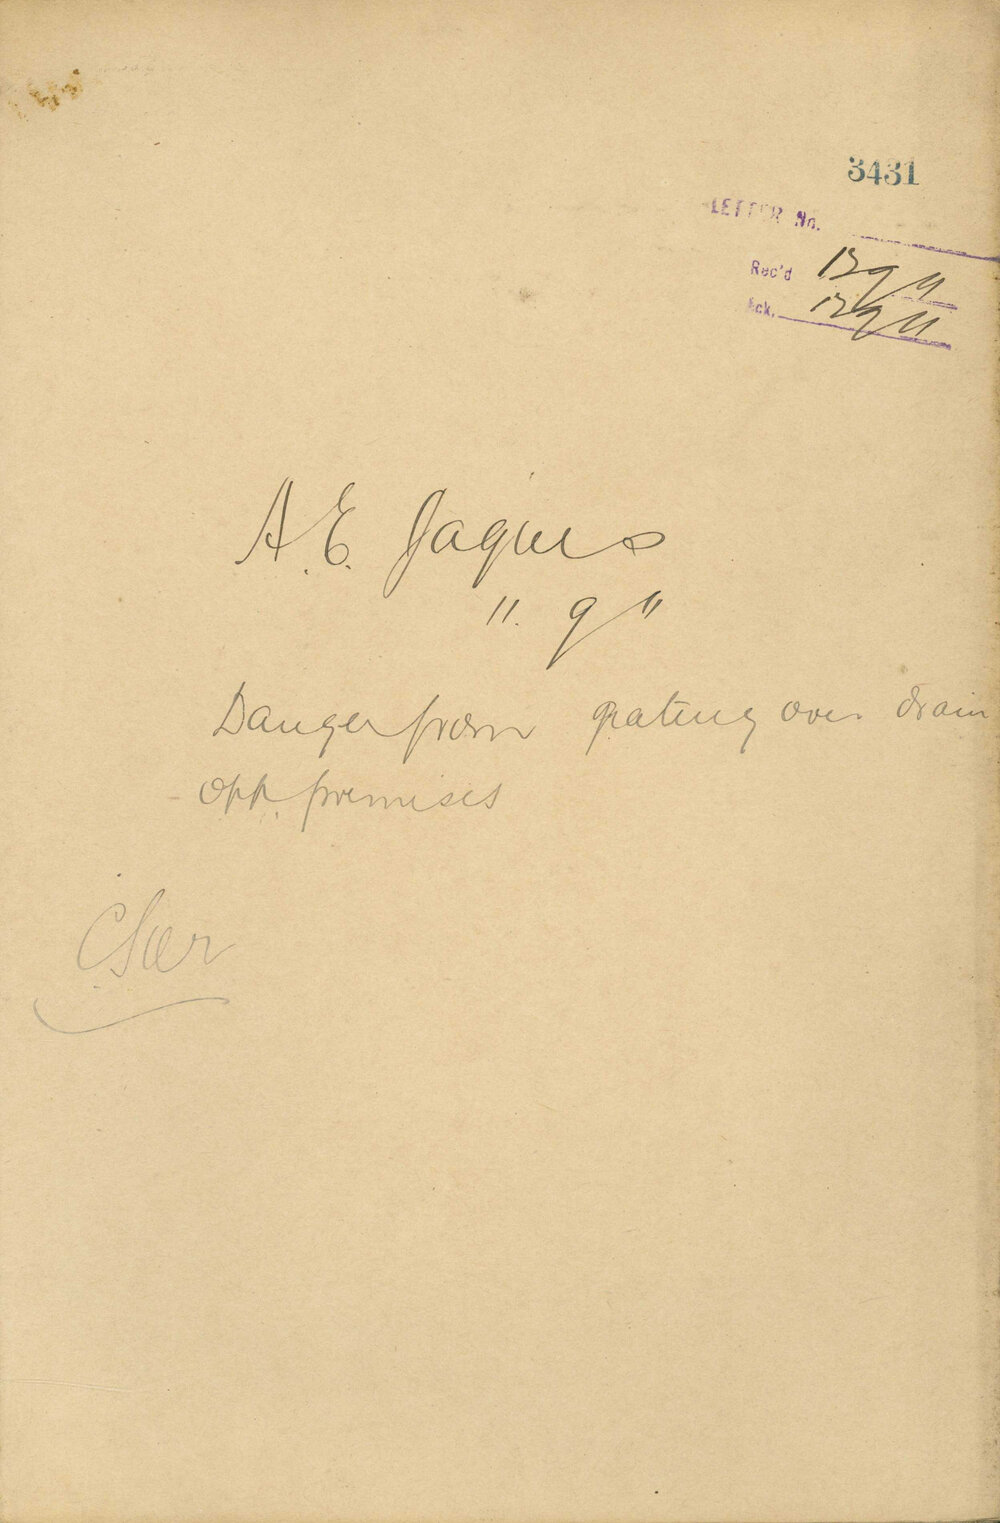 3431
LETTER No.
Rec'd 13 9 11
Ack. 13 9 11
A. E. Jaques
11. 9 11
Danger from grating over drain
opp. premises